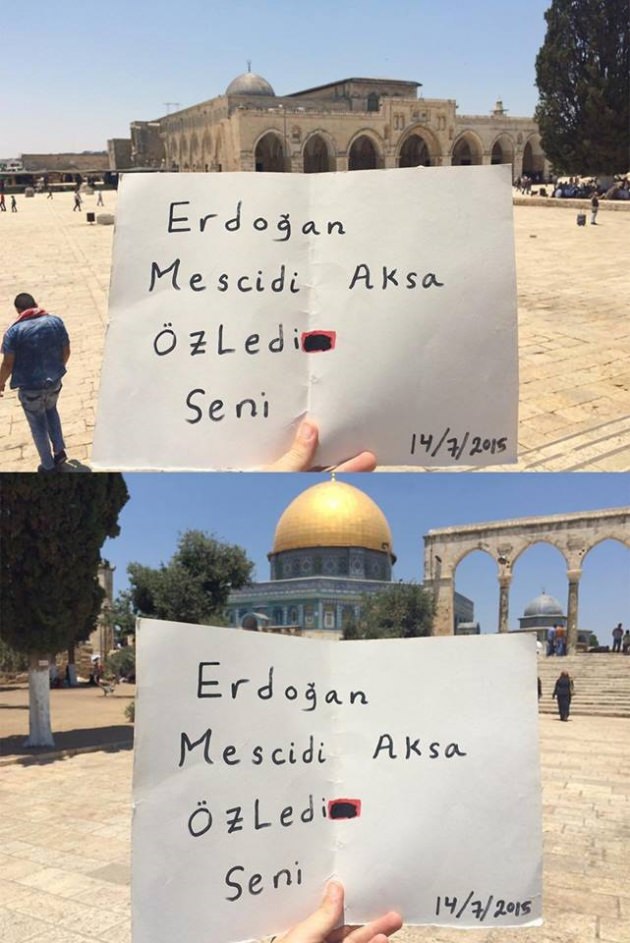 Erdoğan
Mescidi Aksa
Özledi
Seni
14/7/2015
Erdoğan
Mescidi Aksa
Özledi
Seni
14/7/2015